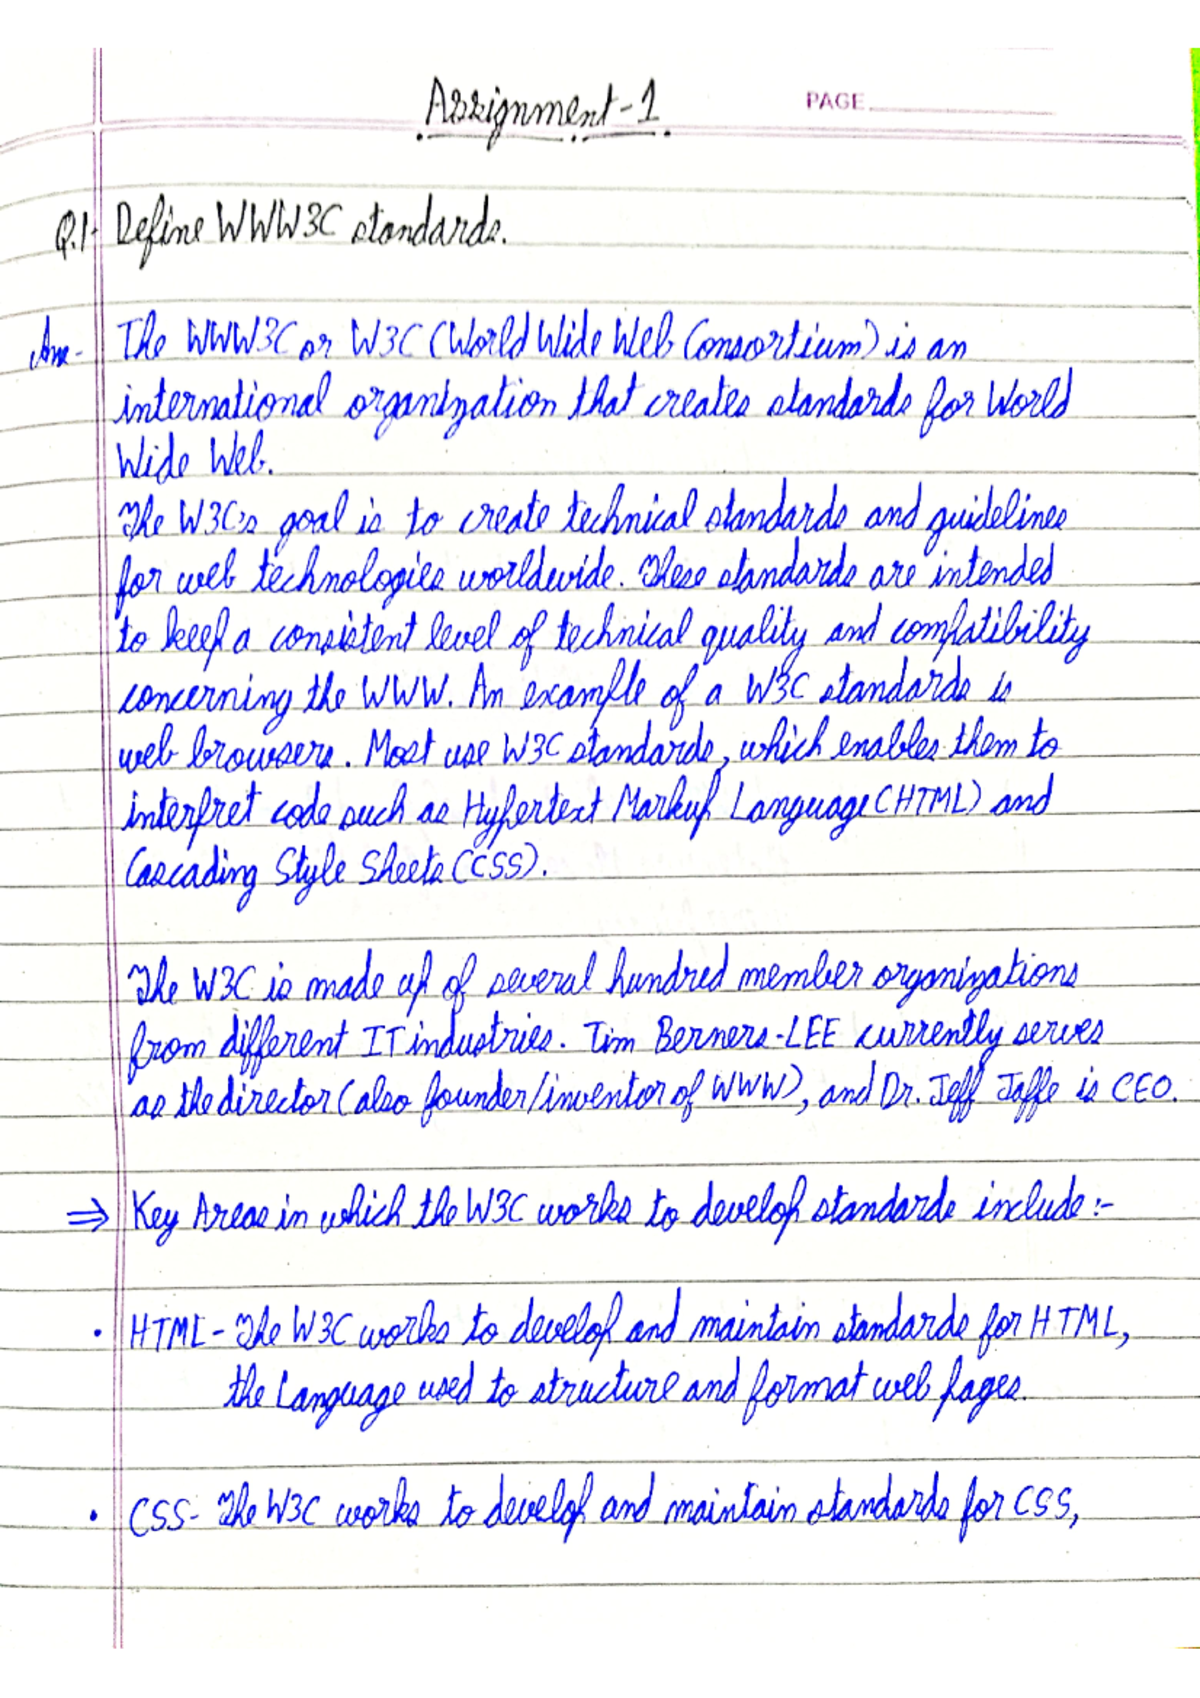 Assignment-1
PAGE
Q.1- Define WWW3C standards.
Ans- The WWW3C or W3C (World Wide Web Consortium) is an
international organization that creates standards for World
Wide Web.
The W3C's goal is to create technical standards and guidelines
for web technologies worldwide. These standards are intended
to keep a consistent level of technical quality and compatibility
concerning the WWW. An example of a W3C standards is
web browsers. Most use W3C standards, which enables them to
interpret code such as Hypertext Markup Language (HTML) and
Cascading Style Sheets (CSS).
The W3C is made up of several hundred member organizations
from different IT industries. Tim Berners-LEE currently serves
as the director (also founder/inventor of WWW), and Dr. Jeff Jaffe is CEO.
⇒ Key Areas in which the W3C works to develop standards include :-
• HTML - The W3C works to develop and maintain standards for HTML,
the Language used to structure and format web pages.
• CSS - The W3C works to develop and maintain standards for CSS,